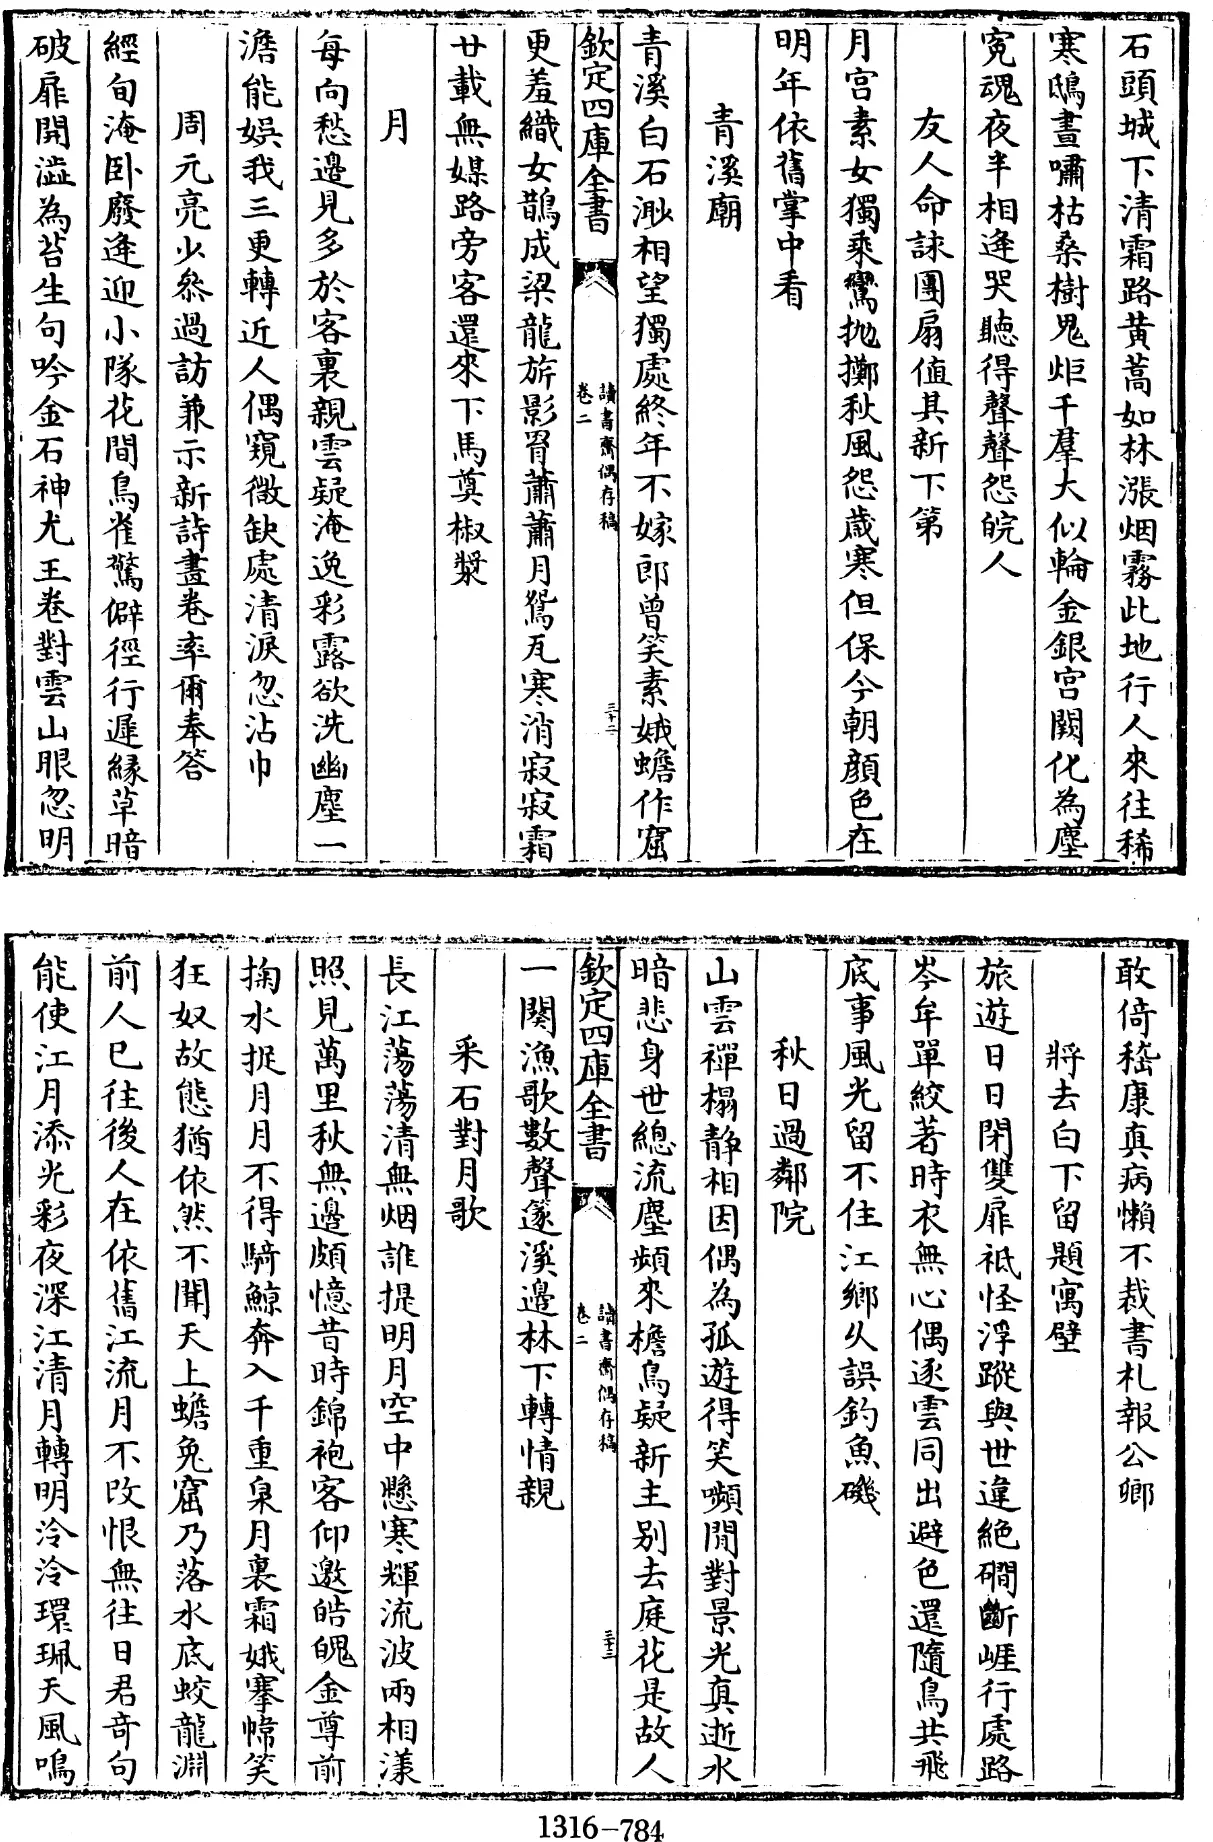 石頭城下清霜路黃蒿如林漲烟霧此地行人來往稀
寒鴟晝嘯枯桑樹鬼炬千羣大似輪金銀宮闕化為塵
寃魂夜半相逢哭聽得聲聲怨皖人
友人命詠團扇值其新下第
月宮素女獨乘鸞抛擲秋風怨歲寒但保今朝顏色在
明年依舊掌中看
青溪廟
青溪白石渺相望獨處終年不嫁郎曾笑素娥蟾作窟
欽定四庫全書
讀書齋偶存稿
卷二
三十二
更羞織女鵲成梁龍旂影罥蕭蕭月鴛瓦寒消寂寂霜
廿載無媒路旁客還來下馬奠椒漿
月
每向愁邊見多於客裏親雲疑淹逸彩露欲洗幽塵一
澹能娛我三更轉近人偶窺微缺處清淚忽沾巾
周元亮少叅過訪兼示新詩畫卷率爾奉答
經旬淹卧廢逢迎小隊花間鳥雀驚僻徑行遲緣草暗
破扉開澁為苔生句吟金石神尤王卷對雲山眼忽明
敢倚嵇康真病懶不裁書札報公卿
將去白下留題寓壁
旅遊日日閉雙扉祗怪浮蹤與世違絶磵斷崕行處路
岑牟單絞著時衣無心偶逐雲同出避色還隨鳥共飛
底事風光留不住江鄉久誤釣魚磯
秋日過鄰院
山雲禪榻靜相因偶為孤遊得笑嚬閒對景光真逝水
暗悲身世總流塵頻來檐鳥疑新主别去庭花是故人
欽定四庫全書
讀書齋偶存稿
卷二
三十三
一闋漁歌數聲篴溪邊林下轉情親
采石對月歌
長江蕩蕩清無烟誰提明月空中懸寒輝流波兩相漾
照見萬里秋無邊頗憶昔時錦袍客仰邀皓魄金尊前
掬水捉月月不得騎鯨奔入千重泉月裏霜娥搴幃笑
狂奴故態猶依然不聞天上蟾兔窟乃落水底蛟龍淵
前人已往後人在依舊江流月不改恨無往日君奇句
能使江月添光彩夜深江清月轉明泠泠環珮天風鳴
1316-784